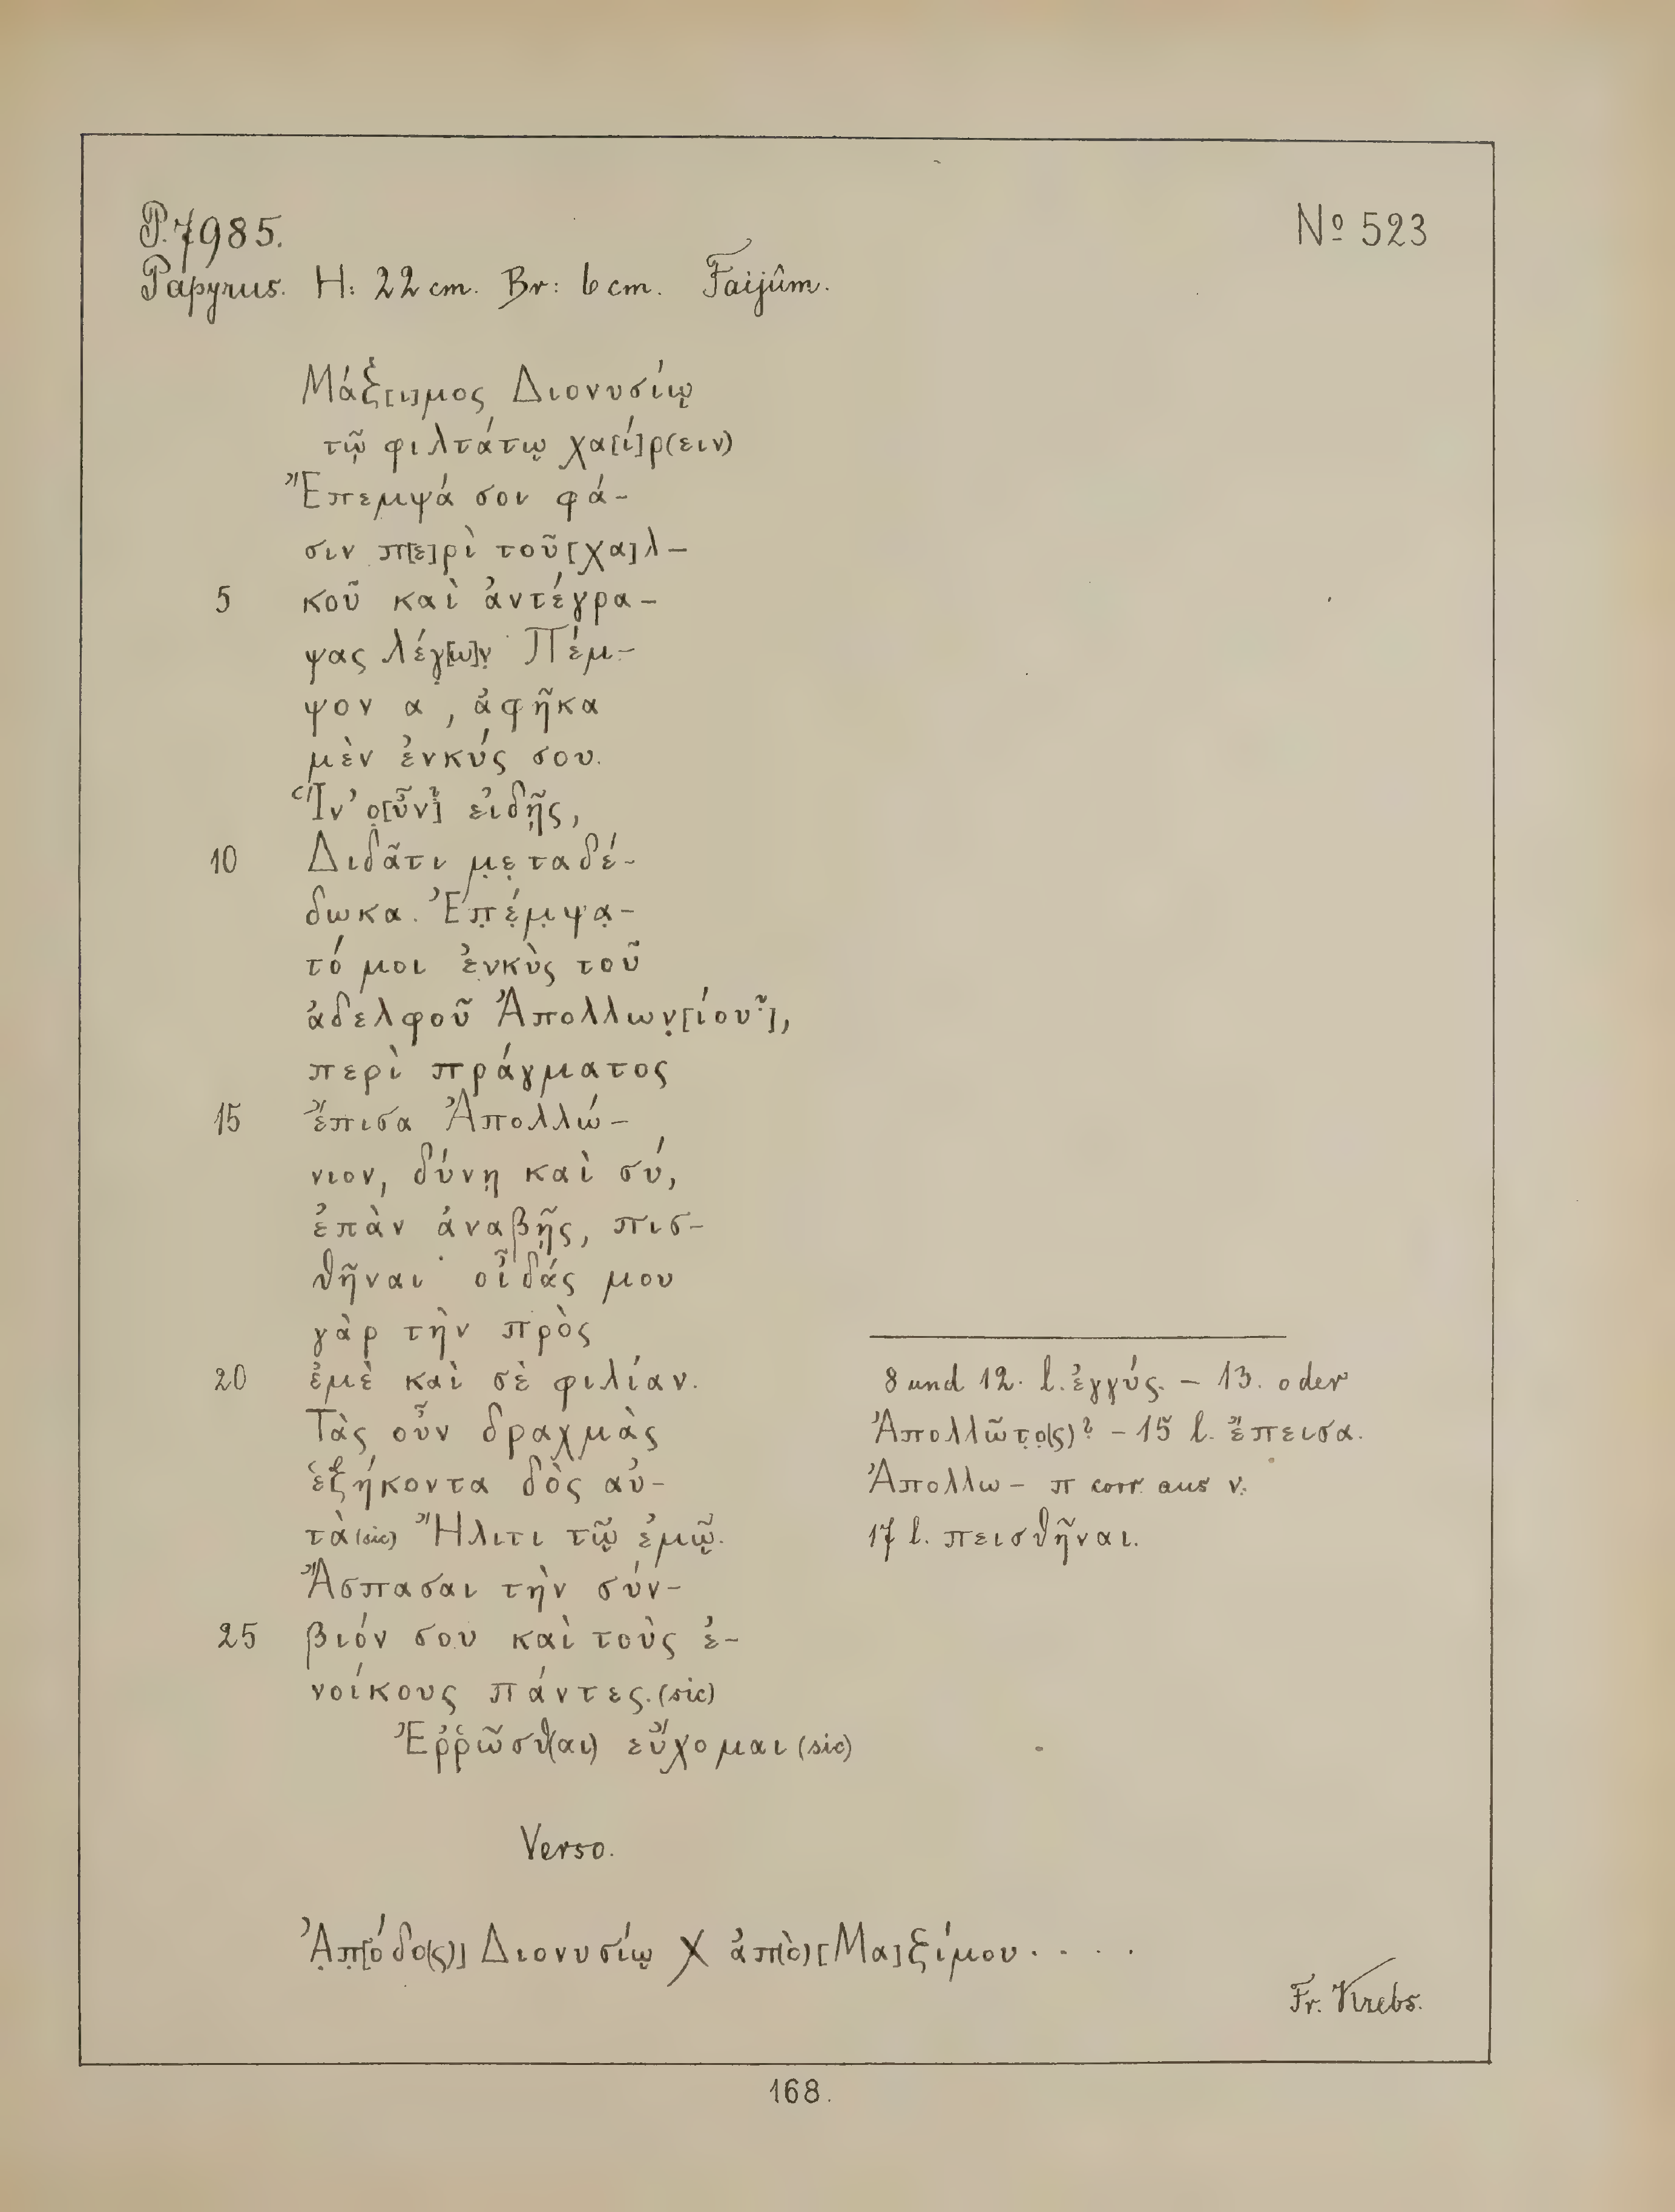 P. 7985.
Nº 523
Papyrus. H: 22 cm. Br: 6 cm. Faijûm.
Μάξ[ι]μος Διονυσίῳ
τῷ φιλτάτῳ χα[ί]ρ(ειν)
Ἔπεμψά σοι φά-
σιν π[ε]ρὶ τοῦ [χα]λ-
5 κοῦ καὶ ἀντέγρα-
ψας λέγ̣[ω]ν̣ Πέμ-
ψον α, ἀφῆκα
μὲν ἐνκύς σου.
Ἵν’ ο̣[ὖν?] εἰδῇς,
10 Διδᾶτι μ̣ε̣ταδέ-
δωκα. Ἐπ̣έ̣μ̣ψα̣-
τό μοι ἐνκὺς τοῦ
ἀδελφοῦ Ἀπολλων̣[ίου?],
περὶ πράγματος
15 ἔπισα Ἀπολλώ-
νιον, δύνῃ καὶ σύ,
ἐπὰν ἀναβῇς, πισ-
θῆναι· οἶδάς μου
γὰρ τὴν πρὸς
20 ἐμὲ καὶ σὲ φιλίαν.
Τὰς οὖν δραχμὰς
ἑξήκοντα δὸς αὐ-
τὰ (sic) Ἥλιτι τῷ ἐμῷ.
Ἄσπασαι τὴν σύν-
25 βιόν σου καὶ τοὺς ἐ-
νοίκους πάντες. (sic)
Ἐῤῥῶσθ(αι) εὔχομαι (sic)
8 und 12. l. ἐγγύς. – 13. oder
Ἀπολλῶτ̣ο̣(ς)? – 15 l. ἔπεισα.
Ἀπολλω – π corr. aus ν.
17 l. πεισθῆναι.
Verso.
Ἀ̣π̣[όδο(ς)] Διονυσίῳ Χ ἀπ(ὸ) [Μα]ξίμου . . . .
Fr. Krebs.
168.